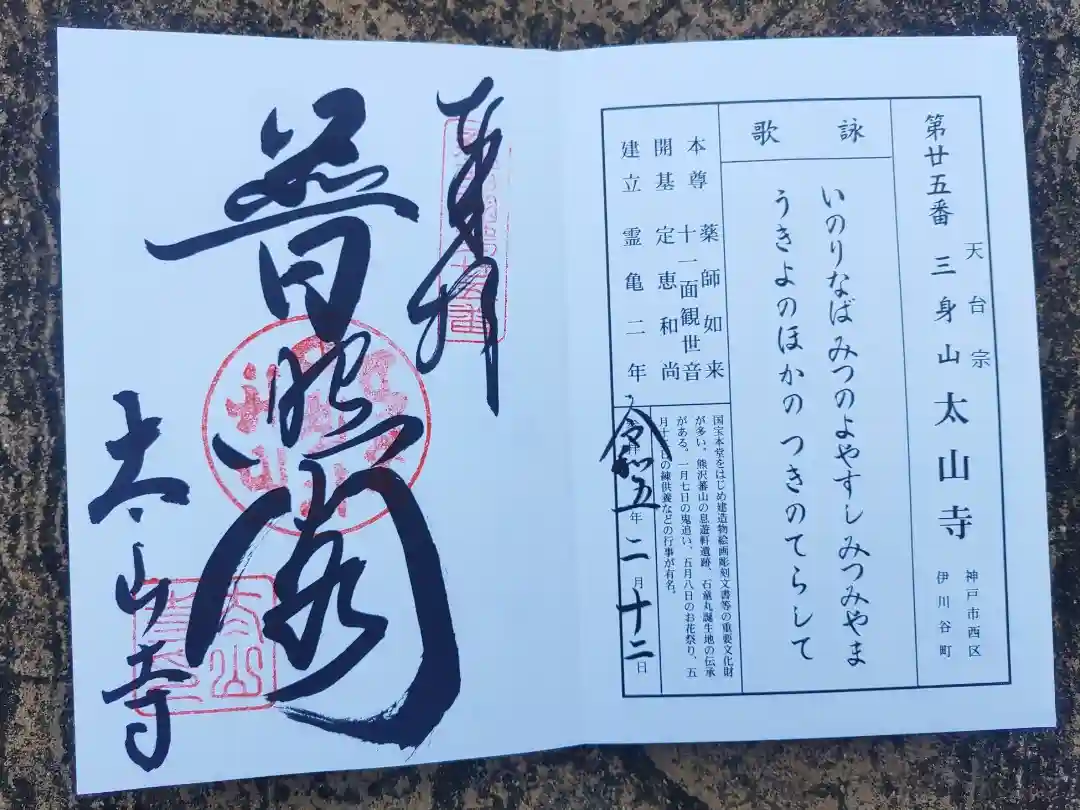 第廿五番
天台宗
三身山太山寺
神戸市西区
伊川谷町
詠歌
いのりなばみつのよやすしみつみやま
うきよのほかのつきのてらして
本尊 薬師如来
十一面観世音
開基 定恵和尚
建立 霊亀二年
国宝本堂をはじめ建造物絵画彫刻文書等の重要文化財
が多い。熊沢蕃山の息遊軒遺跡、石童丸誕生地の伝承
がある。一月七日の鬼追い、五月八日のお花祭り、五
月十二日の練供養などの行事が有名。
令和五年二月十二日
奉拝
普照閣
太山寺